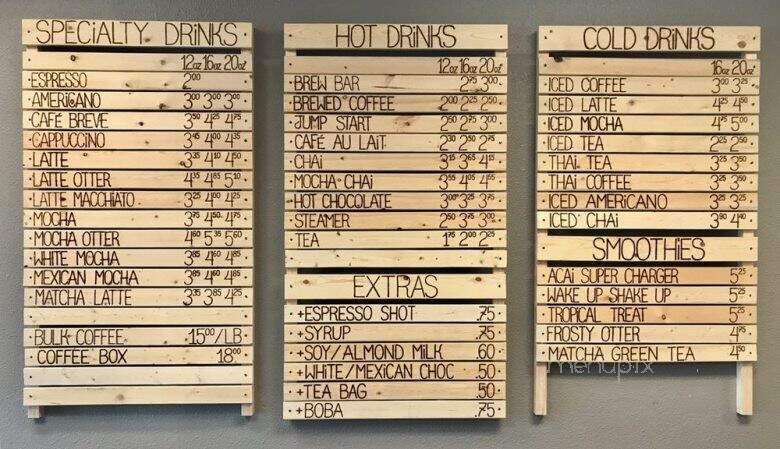 SPECIALTY DRINKS
12oz 16oz 20oz
ESPRESSO 2.00
AMERICANO 3.00 3.00 3.00
CAFÉ BREVE 3.50 4.25 4.75
CAPPUCCINO 3.45 4.00 4.35
LATTE 3.35 4.10 4.50
LATTE OTTER 4.35 4.85 5.10
LATTE MACCHIATO 3.25 4.00 4.25
MOCHA 3.75 4.50 4.75
MOCHA OTTER 4.60 5.35 5.60
WHITE MOCHA 3.85 4.60 4.85
MEXICAN MOCHA 3.85 4.60 4.85
MATCHA LATTE 3.35 3.85 4.25
BULK COFFEE 15.00/LB
COFFEE BOX 18.00
HOT DRINKS
12oz 16oz 20oz
BREW BAR 2.75 3.00
BREWED COFFEE 2.00 2.25 2.50
JUMP START 2.50 2.75 3.00
CAFÉ AU LAIT 2.30 2.50 2.75
CHAI 3.15 3.65 4.15
MOCHA CHAI 3.55 4.05 4.55
HOT CHOCOLATE 3.00 3.25 3.75
STEAMER 2.50 3.75 3.00
TEA 1.75 2.00 2.25
EXTRAS
+ESPRESSO SHOT .75
+SYRUP .75
+SOY/ALMOND MILK .60
+WHITE/MEXICAN CHOC .50
+TEA BAG .50
+BOBA .75
COLD DRINKS
16oz 20oz
ICED COFFEE 3.00 3.25
ICED LATTE 4.25 4.50
ICED MOCHA 4.75 5.00
ICED TEA 2.25 2.50
THAI TEA 3.25 3.50
THAI COFFEE 3.25 3.50
ICED AMERICANO 3.25 3.25
ICED CHAI 3.90 4.40
SMOOTHIES
ACAI SUPER CHARGER 5.25
WAKE UP SHAKE UP 5.25
TROPICAL TREAT 5.25
FROSTY OTTER 4.75
MATCHA GREEN TEA 4.50
menupix